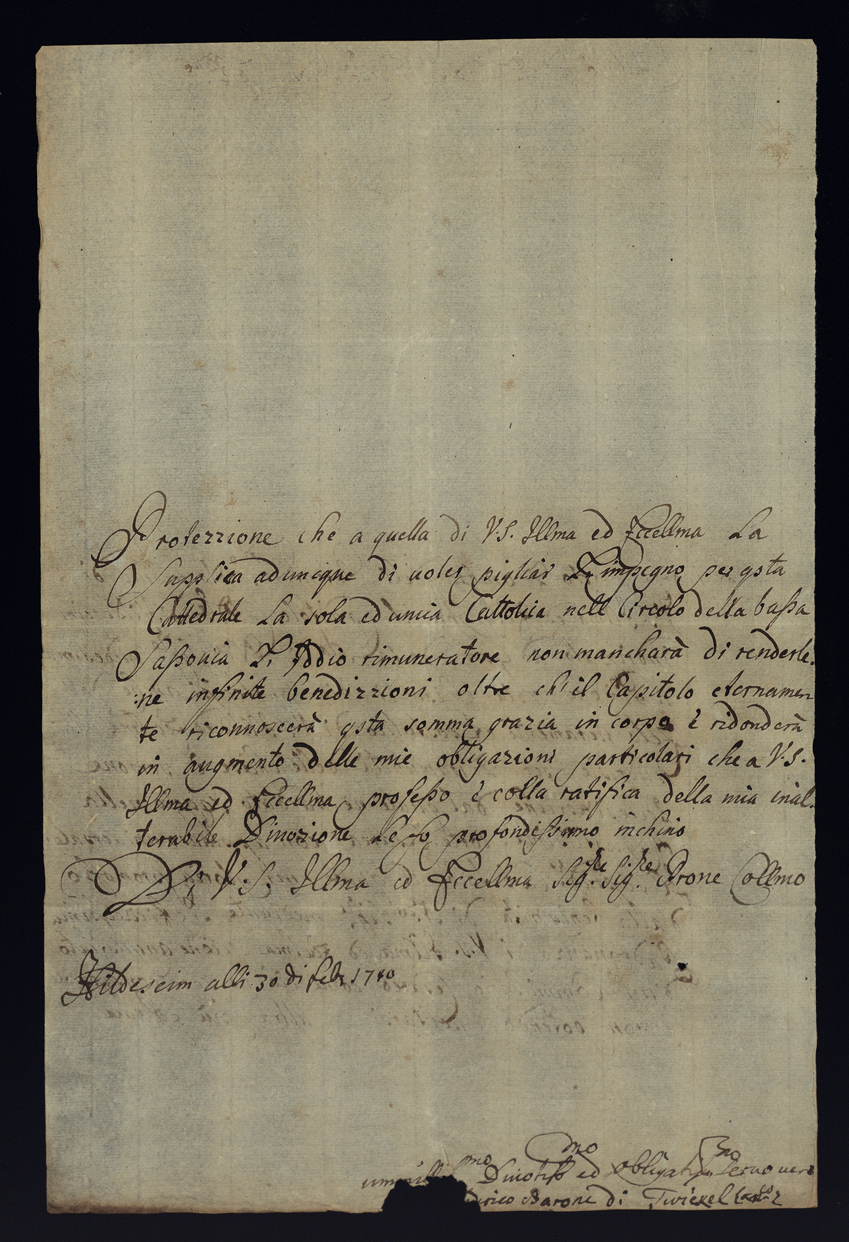 Protezzione che a quella di V.S. Illma ed Eccellma La
Supplica adunque di voler pigliar L'impegno per qsta
Cattedrale La sola ed unica Cattolica nell Circolo della bassa
Sassonia L'Iddio rimuneratore non mancharà di renderle.
:ne infinite benedizzioni oltre ch'il Capitolo eternamen
te riconnoscerà qsta somma grazia in corpo è ridonderà
in augmento delle mie obligazioni particolari che a V.S.
Illma ed Eccellma professo è colla ratifica della mia inal.
terabile Divozione Le fo profondissimo inchino
Di V.S. Illma ed Eccellma Sigre Sigre Brone Collmo
Hildeseim alli 30 di febr 1740
Divotiss mo ed obligatissmo servo vero
Barone di Twickel